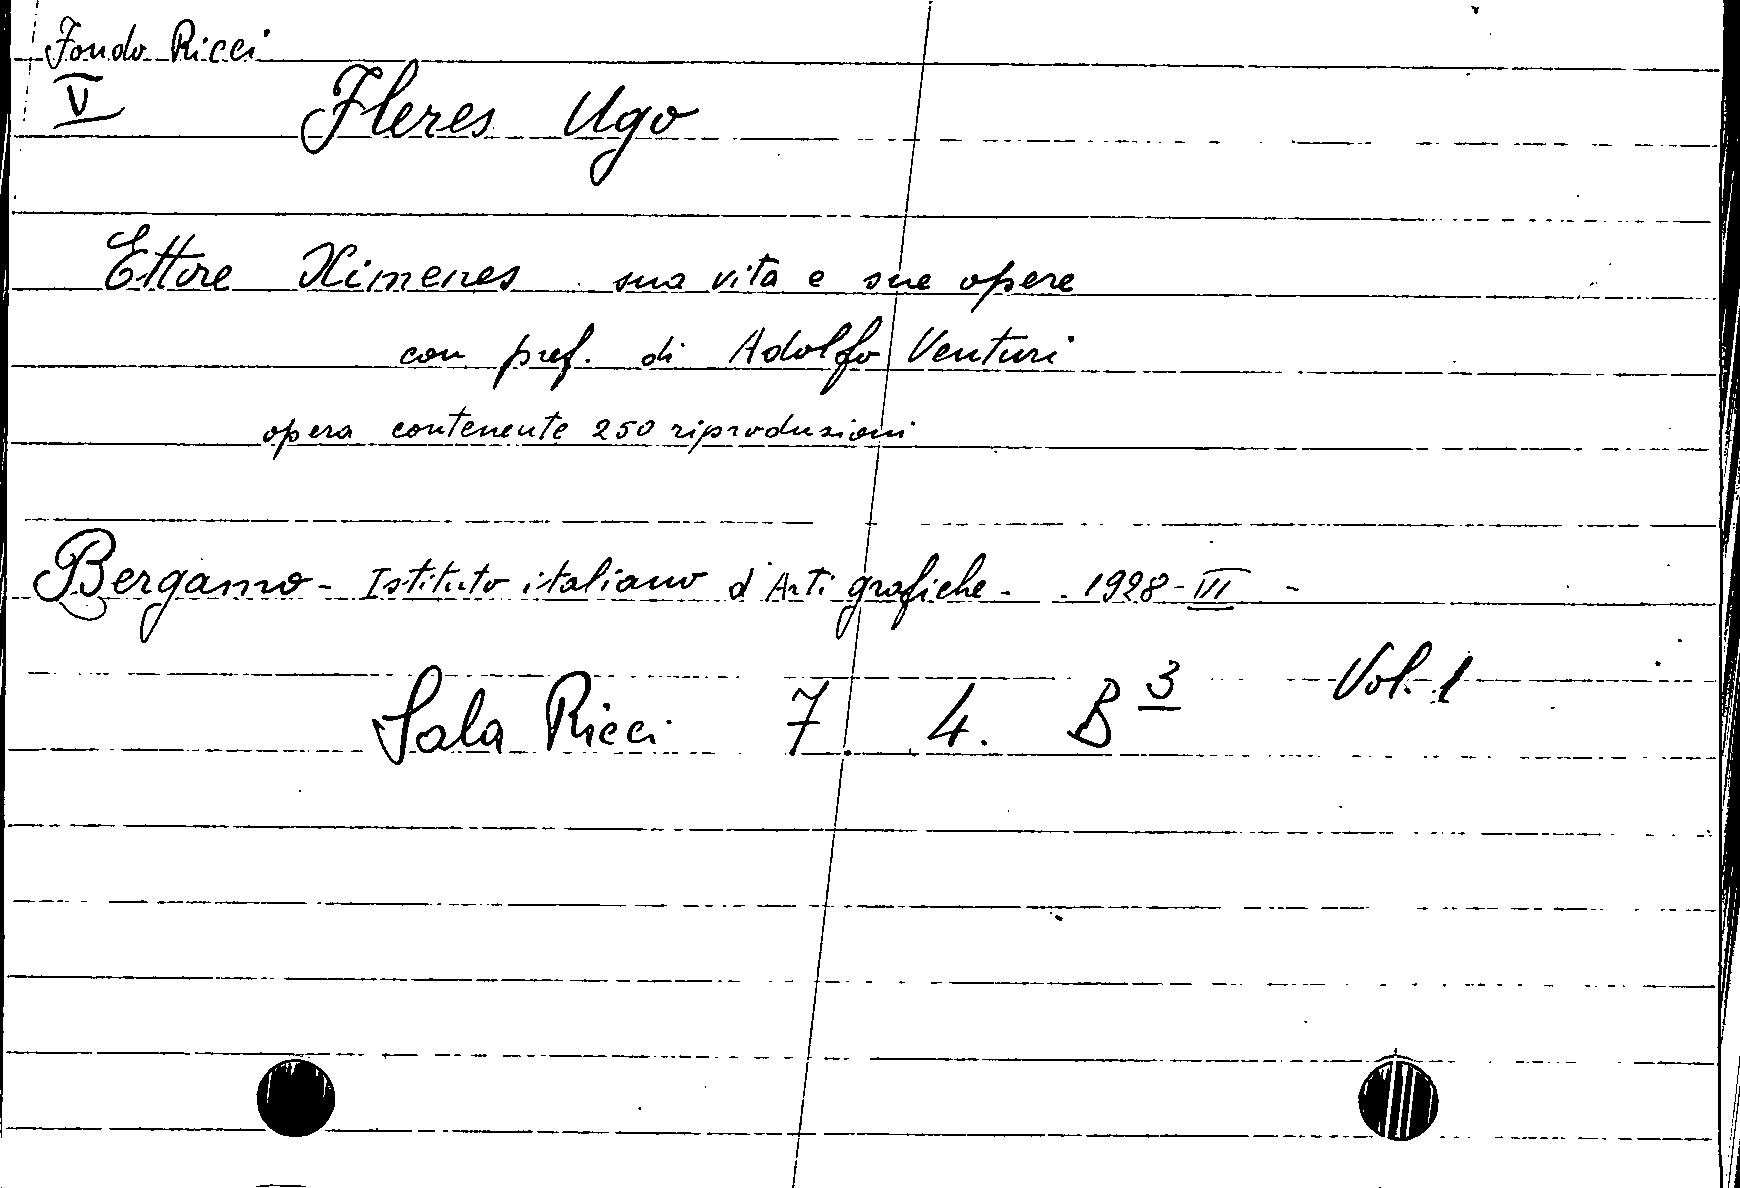 Fondo Ricci
V Fleres Ugo
Ettore Ximenes sua vita e sue opere
con pref. di Adolfo Venturi
opera contenente 250 riproduzioni
Bergamo - Istituto italiano d'Arti grafiche - 1928 - VI -
Vol. 1
Sala Ricci 7. 4. B 3